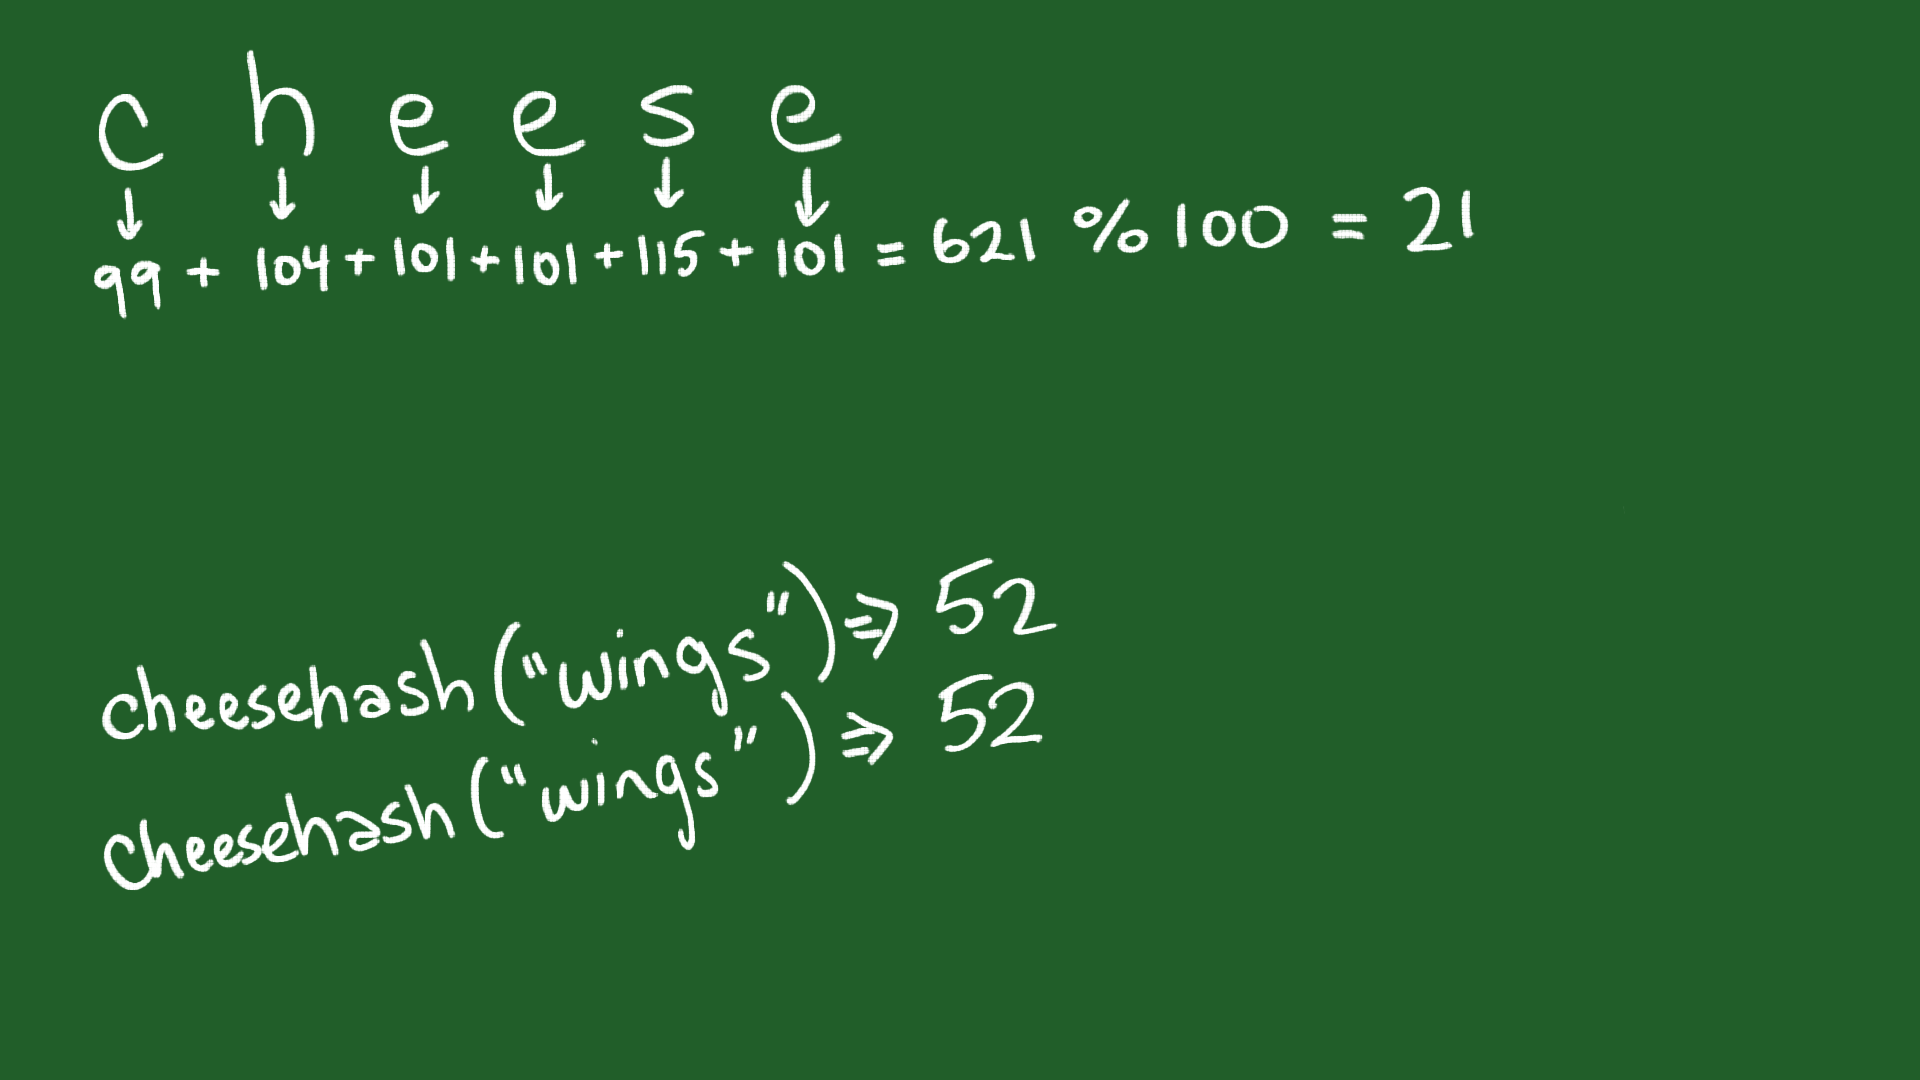 c h e e s e
↓ ↓ ↓ ↓ ↓ ↓
99 + 104 + 101 + 101 + 115 + 101 = 621 % 100 = 21
cheesehash("wings") ⇒ 52
cheesehash("wings") ⇒ 52